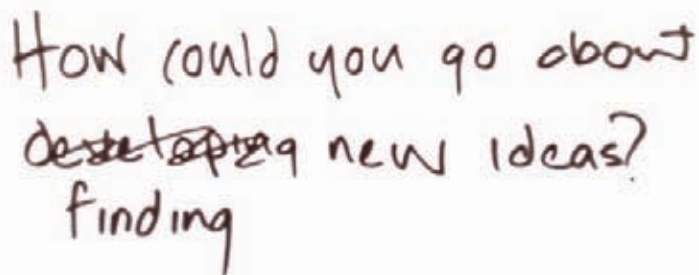 How could you go about
developing new ideas?
finding